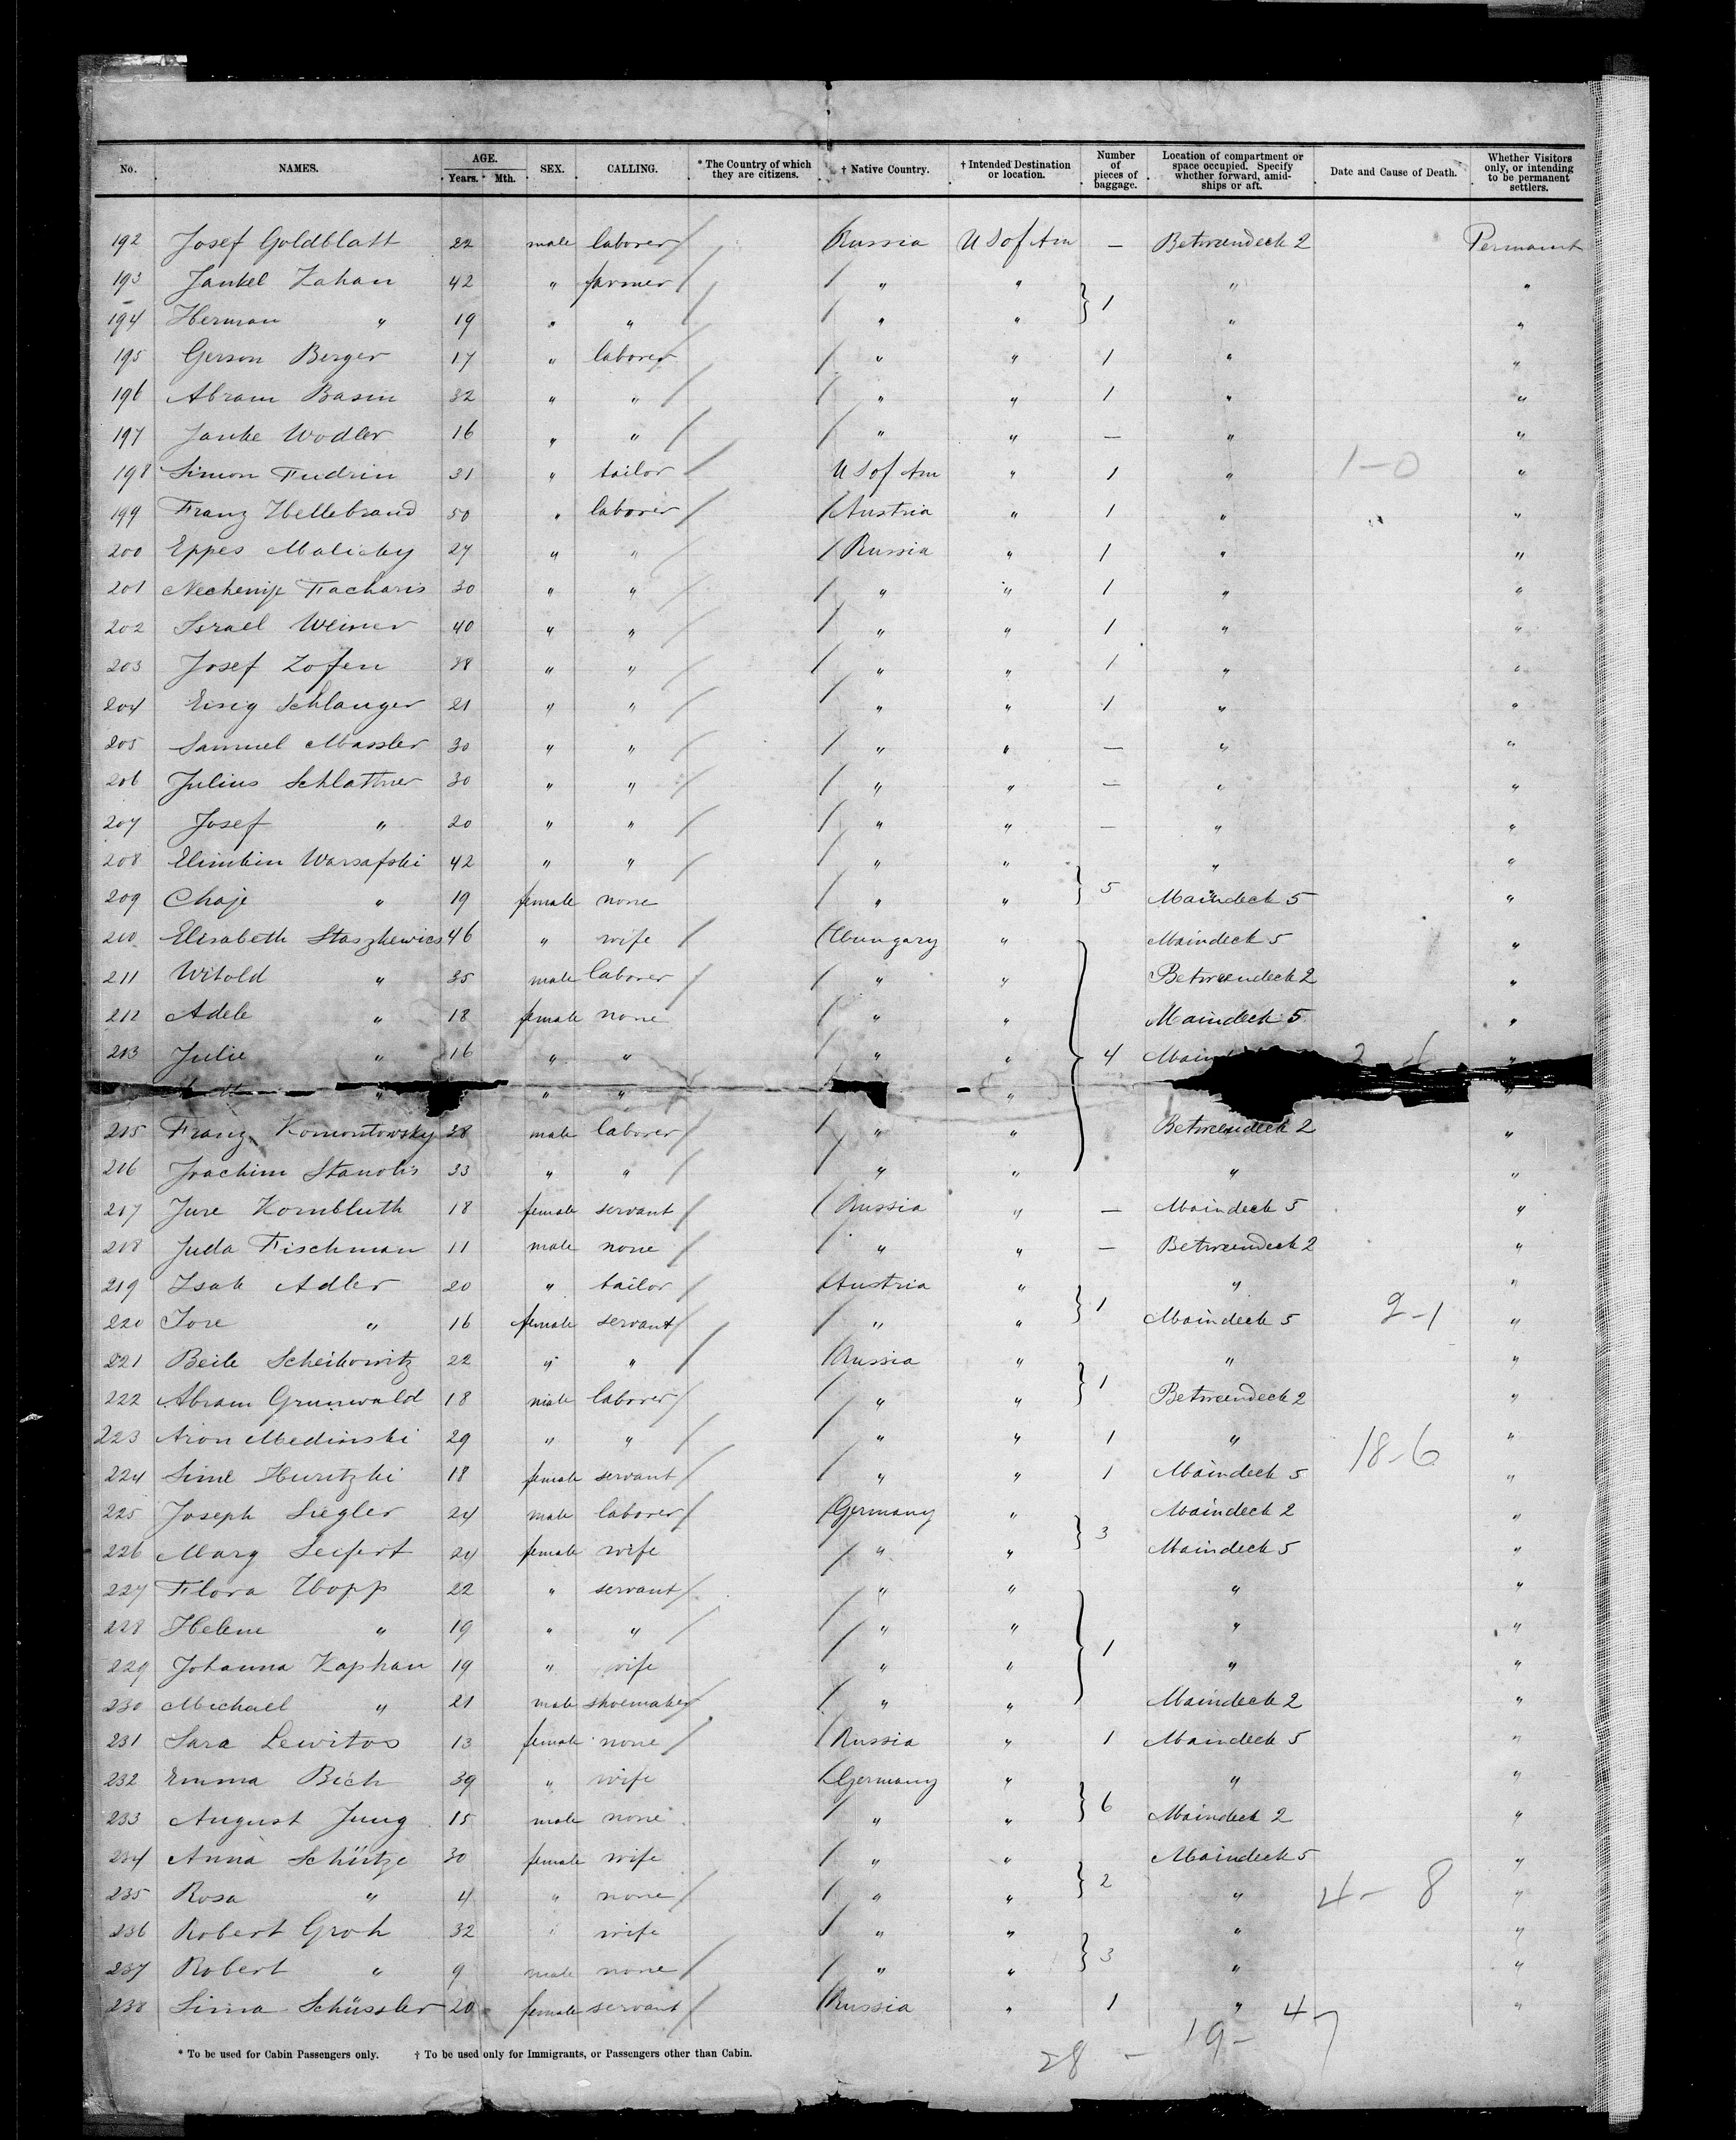 No. NAMES. AGE. Years. Mth. SEX. CALLING. * The Country of which they are citizens. † Native Country. † Intended Destination or location. Number of pieces of baggage. Location of compartment or space occupied. Specify whether forward, amidships or aft. Date and Cause of Death. Whether Visitors only, or intending to be permanent settlers.
192 Josef Goldblatt 22 male laborer / Russia U S of Am — Betweendeck 2 Permanent
193 Jankel Kahan 42 " farmer / / " " " "
194 Herman " 19 " " / / " " } 1 " "
195 Gerson Berger 17 " laborer / / " " 1 " "
196 Abram Basin 32 " " / / " " 1 " "
197 Janke Wodler 16 " " / / " " — " "
198 Simon Fudrin 31 " tailor / U S of Am " 1 " 1-0 "
199 Franz Hellebrand 50 " laborer / / Austria " 1 " "
200 Eppes Malicky 27 " " / / Russia " 1 " "
201 Nechemje Facharis 30 " " / / " " 1 " "
202 Israel Weiner 40 " " / / " " 1 " "
203 Josef Zofen 38 " " / / " " 1 " "
204 Eisig Schlanger 21 " " / / " " 1 " "
205 Samuel Massler 30 " " / / " " — " "
206 Julius Schlattner 30 " " / / " " — " "
207 Josef " 20 " " / / " " — " "
208 Warsafski 42 " " / / " " " "
209 Chaje " 19 female none / " " } 5 Maindeck 5 "
210 Elisabeth Staszkewics 46 " wife / / Hungary " Maindeck 5 "
211 Witold " 35 male laborer / / " " Betweendeck 2 "
212 Adele " 18 female none / " " Maindeck 5 "
213 Julie " 16 " " / " " } 4 "
" " " " "
215 Franz Komontowsky 38 male laborer / / " " Betweendeck 2 "
216 Joachim Stanolis 33 " " / / " " " "
217 Jure Kornbluth 18 female servant / / Russia " — Maindeck 5 "
218 Juda Fischman 11 male none / / " " — Betweendeck 2 "
219 Isak Adler 20 " tailor / / Austria " " "
220 Tore " 16 female servant / / " " } 1 Maindeck 5 2-1 "
221 Beile Scheikowitz 22 " " / / Russia " " "
222 Abram Grunwald 18 male laborer / / " " } 1 Betweendeck 2 "
223 Aron Medinski 29 " " / / " " 1 " 18-6 "
224 Sime Huritzki 18 female servant / / " " 1 Maindeck 5 "
225 Joseph Siegler 24 male laborer / / Germany " Maindeck 2 "
226 Mary Seifert 24 female wife / " " } 3 Maindeck 5 "
227 Flora Hopp 22 " servant / / " " " "
228 Helene " 19 " " / / " " " "
229 Johanna Kaphan 19 " wife / " " } 1 " "
230 Michael " 21 male shoemaker / / " " Maindeck 2 "
231 Sara Lewitos 13 female none / / Russia " 1 Maindeck 5 "
232 Emma Bich 39 " wife / Germany " " "
233 August Jung 15 male none / " " } 6 Maindeck 2 "
234 Anna Schütze 30 female wife / " " Maindeck 5 "
235 Rosa " 4 " none / / " " } 2 " 4- 8 "
236 Robert Groh 32 " wife / " " " "
237 Robert " 9 male none / / " " } 3 " "
238 Sima Schüssler 20 female servant / / Russia " 1 " 4 "
28 - 19- 7
* To be used for Cabin Passengers only. † To be used only for Immigrants, or Passengers other than Cabin.